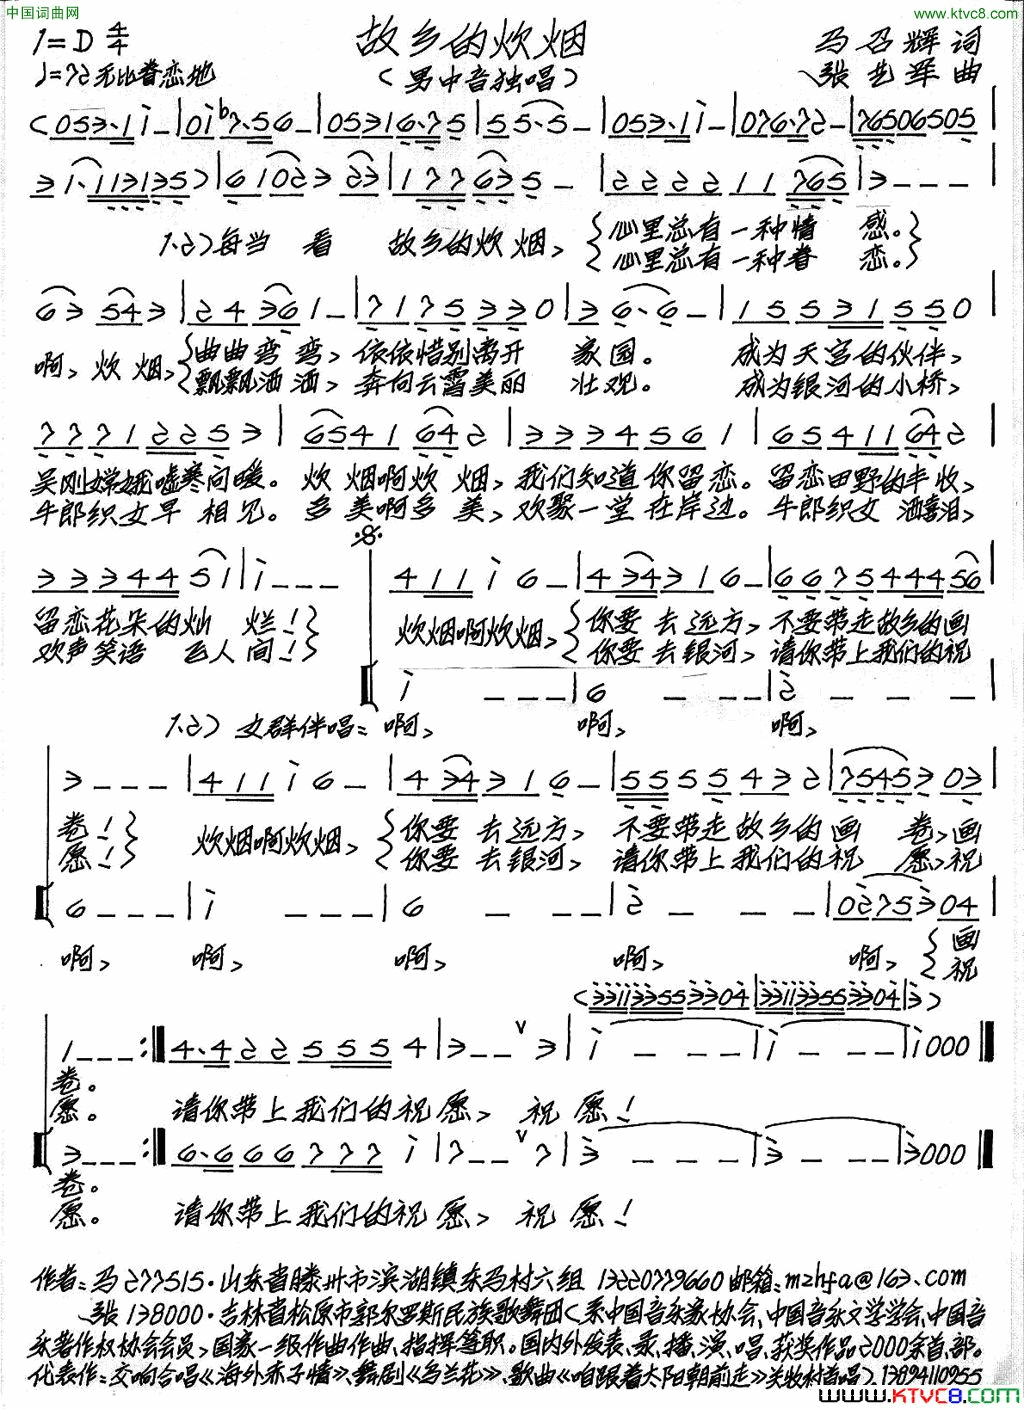 中国词曲网
www.ktvc8.com
1=D 4/4
故乡的炊烟
马召辉 词
♩=72 无比眷恋地
(男中音独唱)
张艺军 曲
(053·1i-|0i♭7·56-|05316·75|55·5-|053·1i-|076·72-|76506505|
31·113135)|6102323|177635-|22221176 5|3---|
1.2)每当 看 故乡的炊烟,{心里总有一种情 感。}
{心里总有一种眷 恋。}
63 543|24361-|7175330|36·6-|15531550|
啊,炊烟,{曲曲弯弯,依依惜别离开 家园。 成为天宫的伙伴,
{飘飘洒洒,奔向云霄美丽 壮观。 成为银河的小桥,
77712253|6541642|3334561|65411642|
吴刚嫦娥嘘寒问暖。炊 烟啊炊 烟,我们知道你留恋。留恋田野的丰收,
牛郎织女早 相见。多 美啊多 美,欢聚一堂在岸边。牛郎织女 洒喜泪,
3334451|i---|411i6-|434316-|6675444 56|
留恋花朵的灿 烂!} 炊烟啊炊烟,{你要 去远方,不要带走故乡的画
欢声笑语 飞人间!} {你要 去银河,请你带上我们的祝
i---|6---|2---|
1.2) 女群伴唱:啊, 啊, 啊,
3---|411i6-|434316-|5555432|7545303|
卷!} 炊烟啊炊烟,{你要 去远方, 不要带走故乡的画 卷,画
愿!} {你要 去银河, 请你带上我们的祝 愿,祝
6---|i---|6---|2---|0275304|
啊, 啊, 啊, 啊, 啊,{画
{祝
(331133553304|331133553304|3)
1---:‖4·4225554|3--∨3|i---|i---|i000‖
卷。
愿。 请你带上我们的祝愿, 祝愿!
3---:‖6·666777i|7--∨7|3---|3---|3000‖
卷。
愿。 请你带上我们的祝愿, 祝愿!
作者:马277515·山东省滕州市滨湖镇东马村六组 13220779660邮箱:mzhfa@163.com
张138000·吉林省松原市郭尔罗斯民族歌舞团(系中国音乐家协会、中国音乐文学学会、中国音
乐著作权协会会员,国家一级作曲作曲、指挥等职。国内外发表、录、播、演、唱、获奖作品2000余首、部。
代表作:交响合唱《海外赤子情》、舞剧《乌兰花》、歌曲《咱跟着太阳朝前走》关牧村首唱).13894110955
www.KTVC8.com